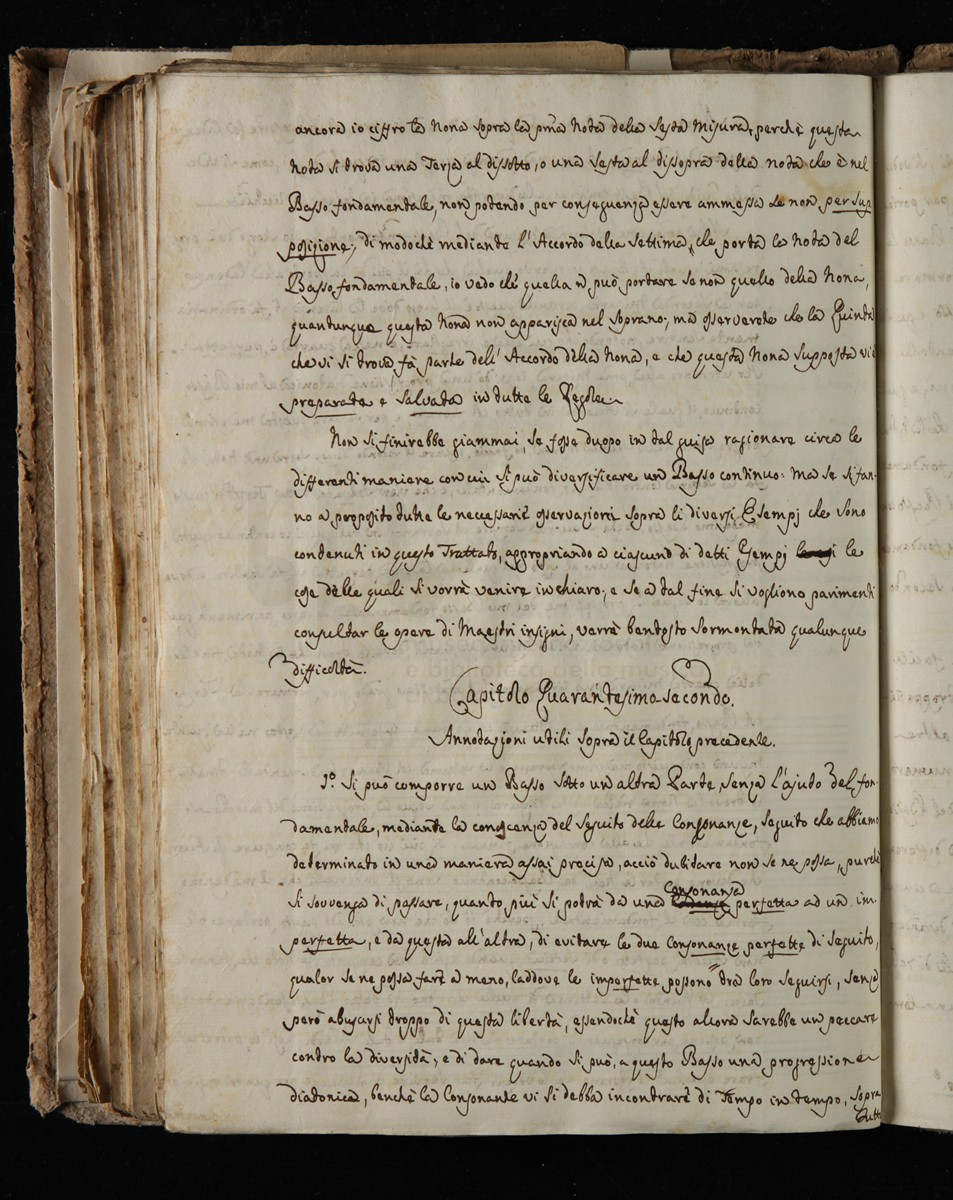 ancora io ciffro la Nona sopra la pma Nota della Sesta Misura, perchè questa
Nota si trova una Terza al dissotto, o una Sesta al dissopra della nota che è nel
Basso fondamentale, non potendo per conseguenza essere ammessa se non per sup
posizione; di modochè mediante l'Accordo della Settima, che porta la Nota del
Basso fondamentale, io vedo che quella ñ può portare se non quello della Nona,
quantunque questa Nona non apparisca nel Soprano; ma osserverete che la Quinta
che vi si trova fà parte dell'Accordo della Nona, e che questa Nona supposta vi è
preparata e salvata in tutte le Regole.
Non si finirebbe giammai, se fosse duopo in tal guisa ragionare circa le
differenti maniere con cui si può diversificare un Basso continuo: ma se si fan-
no a proposito tutte le necessarie osservazioni sopra li diversi Esempj che sono
contenuti in questo Trattato, appropriando a ciascuno di detti Esempj le
cose delle quali si vorrà venire in chiaro, e se a tal fine si vogliono parimenti
consultar le opere di Maestri insigni, verrà bentosto sormontata qualunque
difficoltà.
Capitolo Quarantesimo-secondo.
Annotazioni utili sopra il Capitolo precedente.
1.º Si può comporre un Basso sotto un'altra Parte, senza l'ajuto del fon-
damentale, mediante la conoscenza del Seguito delle Consonanze, seguito che abbiamo
determinato in una maniera assai precisa, acciò dubitare non se ne possa, purchè
si sovvenga di passare, quanto più si potrà da una Consonanza perfetta ad un im-
perfetta, e da questa all'altra, di evitare le due Consonanze perfette di seguito,
qualor se ne possa fare a meno, laddove le imperfette possono trà loro seguirsi, senza
però abusarsi troppo di questa libertà, essendochè questo allora sarebbe un peccare
contro la diversità; e di dare quando si può, a questo Basso una progressione
diatonica, benchè la Consonante vi si debba incontrare di Tempo in tempo, sopra
tutto